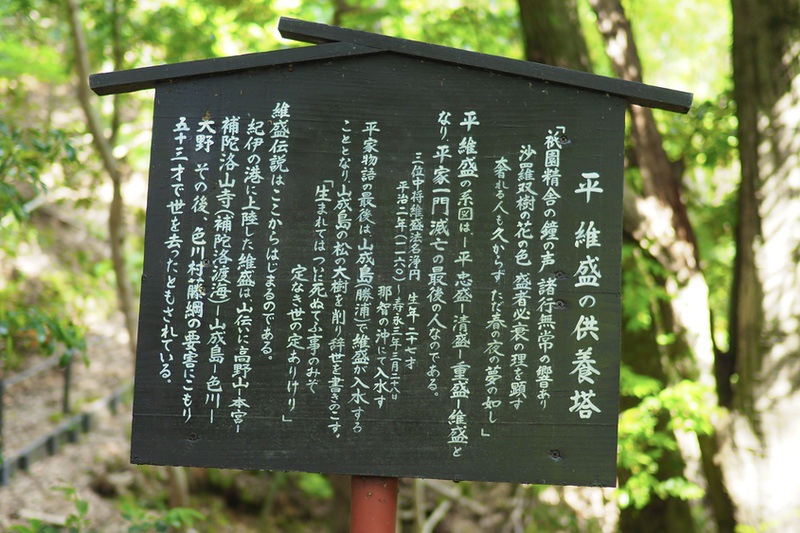 平 維盛の供養塔
「祇園精舎の鐘の声 諸行無常の響あり
沙羅双樹の花の色 盛者必衰の理を顕す
奢れる人も久からず ただ春の夜の夢の如し」
平 維盛の系図は―平 忠盛―清盛―重盛―維盛と
なり、平家一門滅亡の最後の人なのである。
三位中将維盛法名浄円 生年二十七才
平治二年(一一六〇)〜寿永三年三月二八
那智の沖にて入水す
平家物語の最後は、山成島(勝浦)で維盛が入水する
こととなり、山成島の松の大樹を削り辞世を書きのこす。
「生まれてはつひに死ぬてふ事のみぞ
定なき世の定ありけり」
維盛伝説はここからはじまるのである。
紀伊の港に上陸した維盛は山伝に高野山―本宮―
補陀洛山寺(補陀洛渡海)―山成島―色川―
大野 その後、色川村藤綱の要害にこもり
五十三才で世を去ったともされている。